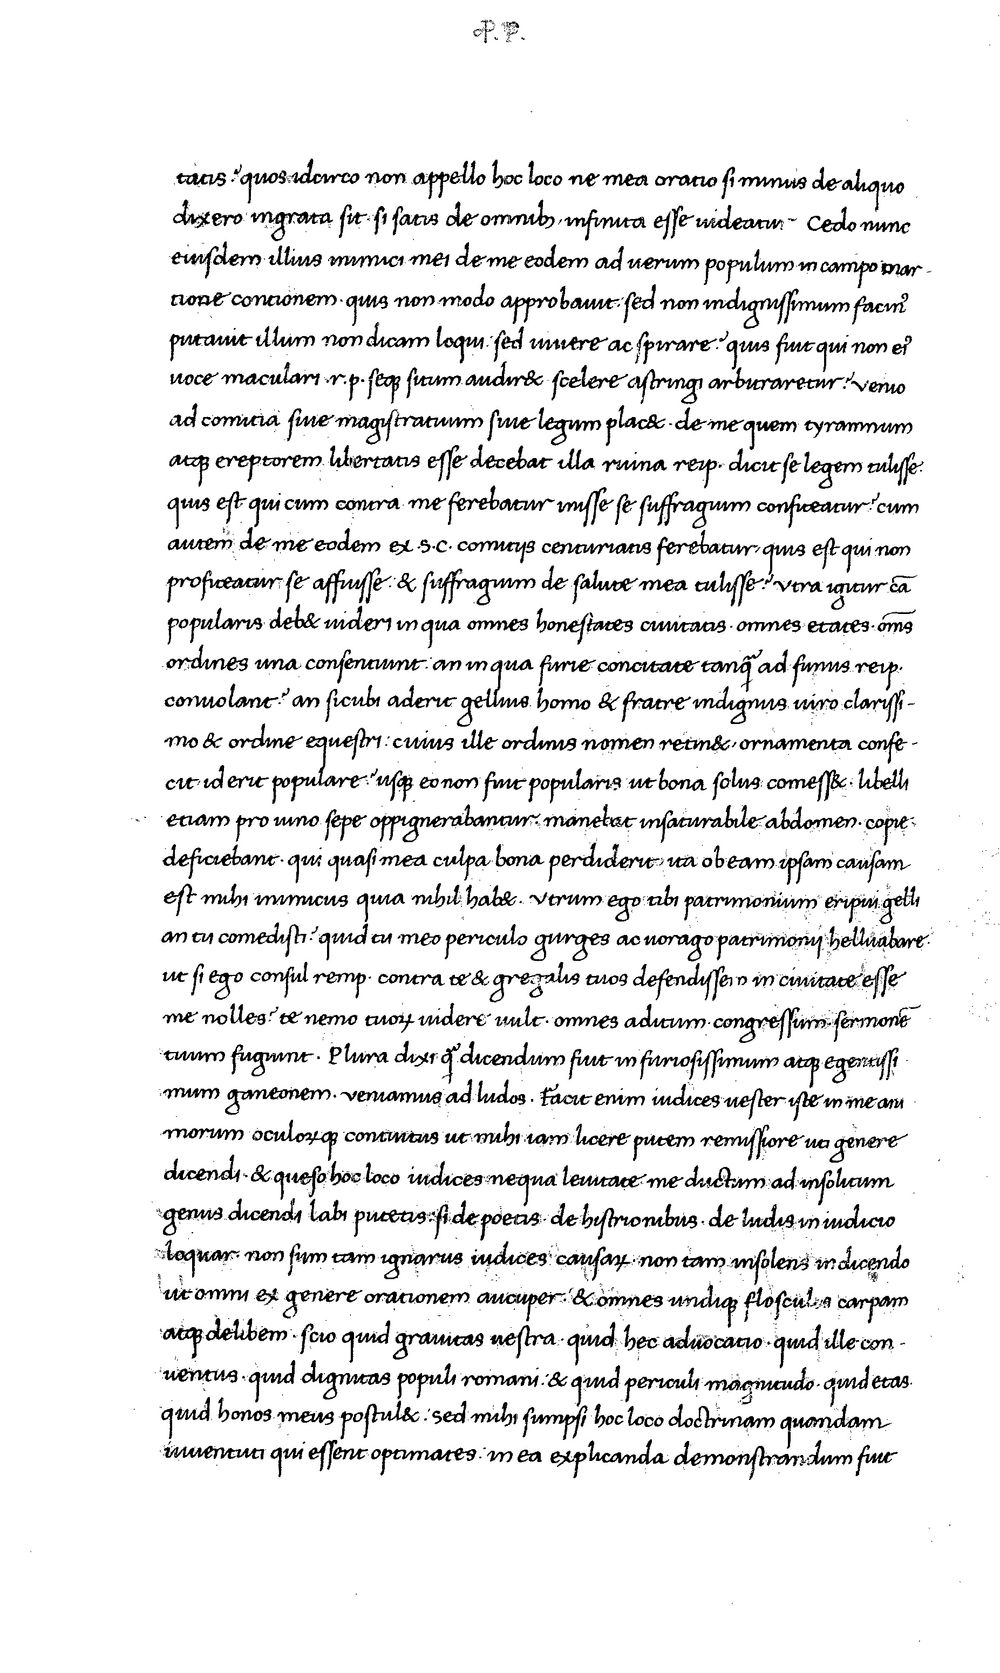 .P.P.
tatis? quos idcirco non appello hoc loco ne mea oratio si minus de aliquo
dixero ingrata sit. si satis de omnib; infinita esse uideatur. Cedo nunc
eiusdem illius inimici mei de me eodem ad uerum populum in campo mar-
tio ne concionem. quis non modo approbauit. sed non indignissimum facinꝰ
putauit illum non dicam loqui. sed uiuere ac spirare? quis fuit qui non eiꝰ
uoce maculari .r.p. seqꝫ si tum audir& scelere astringi arbitraretur? Venio
ad comitia siue magistratuum siue legum plac&. de me quem tyramnum
atqꝫ ereptorem libertatis esse decebat illa ruina reip. dicit se legem tulisse.
quis est qui cum contra me ferebatur inisse se suffragium confiteatur? cum
autem de me eodem ex .S.C. comitijs centuriatis ferebatur, quis est qui non
profiteatur se affuisse. & suffragium de salute mea tulisse? Vtra igitur cā
popularis deb& uideri in qua omnes honestates ciuitatis. omnes etates. om̄s
ordines una consentiunt. an in qua furie concitate tanq̄ ad funus reip.
conuolant? an sicubi aderit gellius homo & fratre indignus uiro clarissi-
mo & ordine equestri. cuius ille ordinis nomen retin&, ornamenta confe-
cit. id erit populare? usqꝫ eo non fuit popularis ut bona solus comess&. libelli
etiam pro uino sepe oppignerabantur. manebat insaturabile abdomen. copie.
deficiebant. qui quasi mea culpa bona perdiderit. ita ob eam ipsam causam
est mihi inimicus quia nihil hab&. Vtrum ego tibi patrimonium eripui gelli
an tu comedisti? quid tu meo periculo gurges ac uorago patrimonij helluabare.
ut si ego consul remp. contra te & gregalis tuos defendissem in ciuitate esse
me nolles? te nemo tuoꝝ uidere uult. omnes aditum. congressum. sermonē
tuum fugiunt. Plura dixi q̄ dicendum fuit in furiosissimum atqꝫ egentissi
mum ganeonem. veniamus ad ludos. Facit enim iudices uester iste in me ani
morum oculoꝝqꝫ coniuitus ut mihi iam licere putem remissiore uti genere
dicendi. & queso hoc loco iudices nequa leuitate me ductum ad insolitum
genus dicendi labi putetis. si de poetis. de histrionibus. de ludis in iudicio
loquar. non sum tam ignarus iudices causaꝝ. non tam insolens in dicendo
ut omni ex genere orationem aucuper. & omnes undiqꝫ flosculos carpam
atqꝫ delibem. scio quid grauitas uestra. quid hec aduocatio. quid ille con-
uentus. quid dignitas populi romani. & quid periculi magnitudo. quid etas.
quid honos meus postul&. sed mihi sumpsi hoc loco doctrinam quandam
iuuentuti qui essent optimates. in ea explicanda demonstrandum fuit